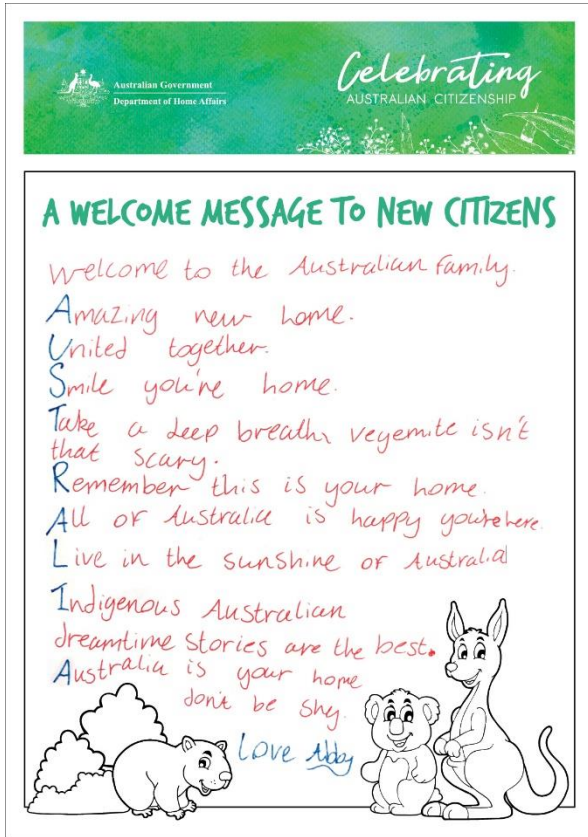 Australian Government
Department of Home Affairs
Celebrating
AUSTRALIAN CITIZENSHIP
A WELCOME MESSAGE TO NEW CITIZENS
Welcome to the Australian Family.
Amazing new home.
United together.
Smile you're home.
Take a deep breath, vegemite isn't
that scary.
Remember this is your home.
All of Australia is happy you're here.
Live in the sunshine of Australia
Indigenous Australian
dreamtime stories are the best.
Australia is your home
don't be shy.
Love Abby